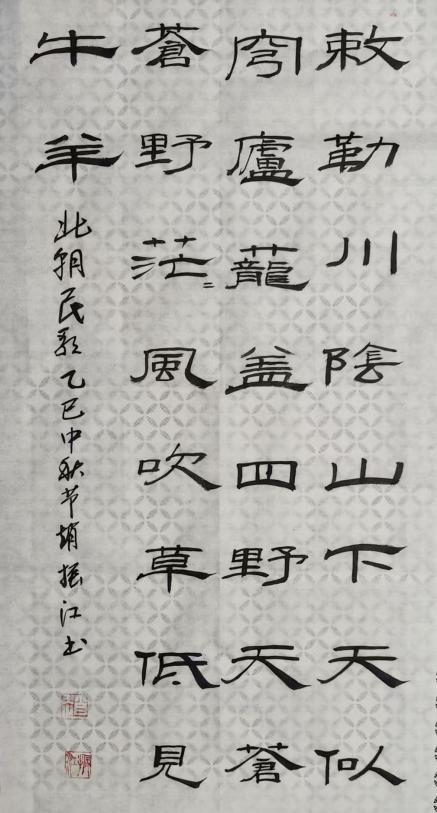 敕勒川陰山下天似
穹廬蘢盖四野天蒼
蒼野茫〻風吹草低見
牛羊
北朝民歌乙巳中秋节趙振江书